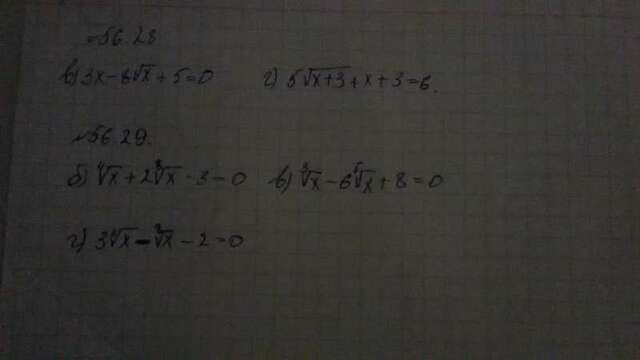 №56 28
в) 3x - 8√x + 5 = 0 г) 5√x+3 + x + 3 = 6.
№56 29.
б) ∜x + 2∛x - 3 = 0 в) ∛x - 6 √x + 8 = 0
г) 3√x - ∜x - 2 = 0